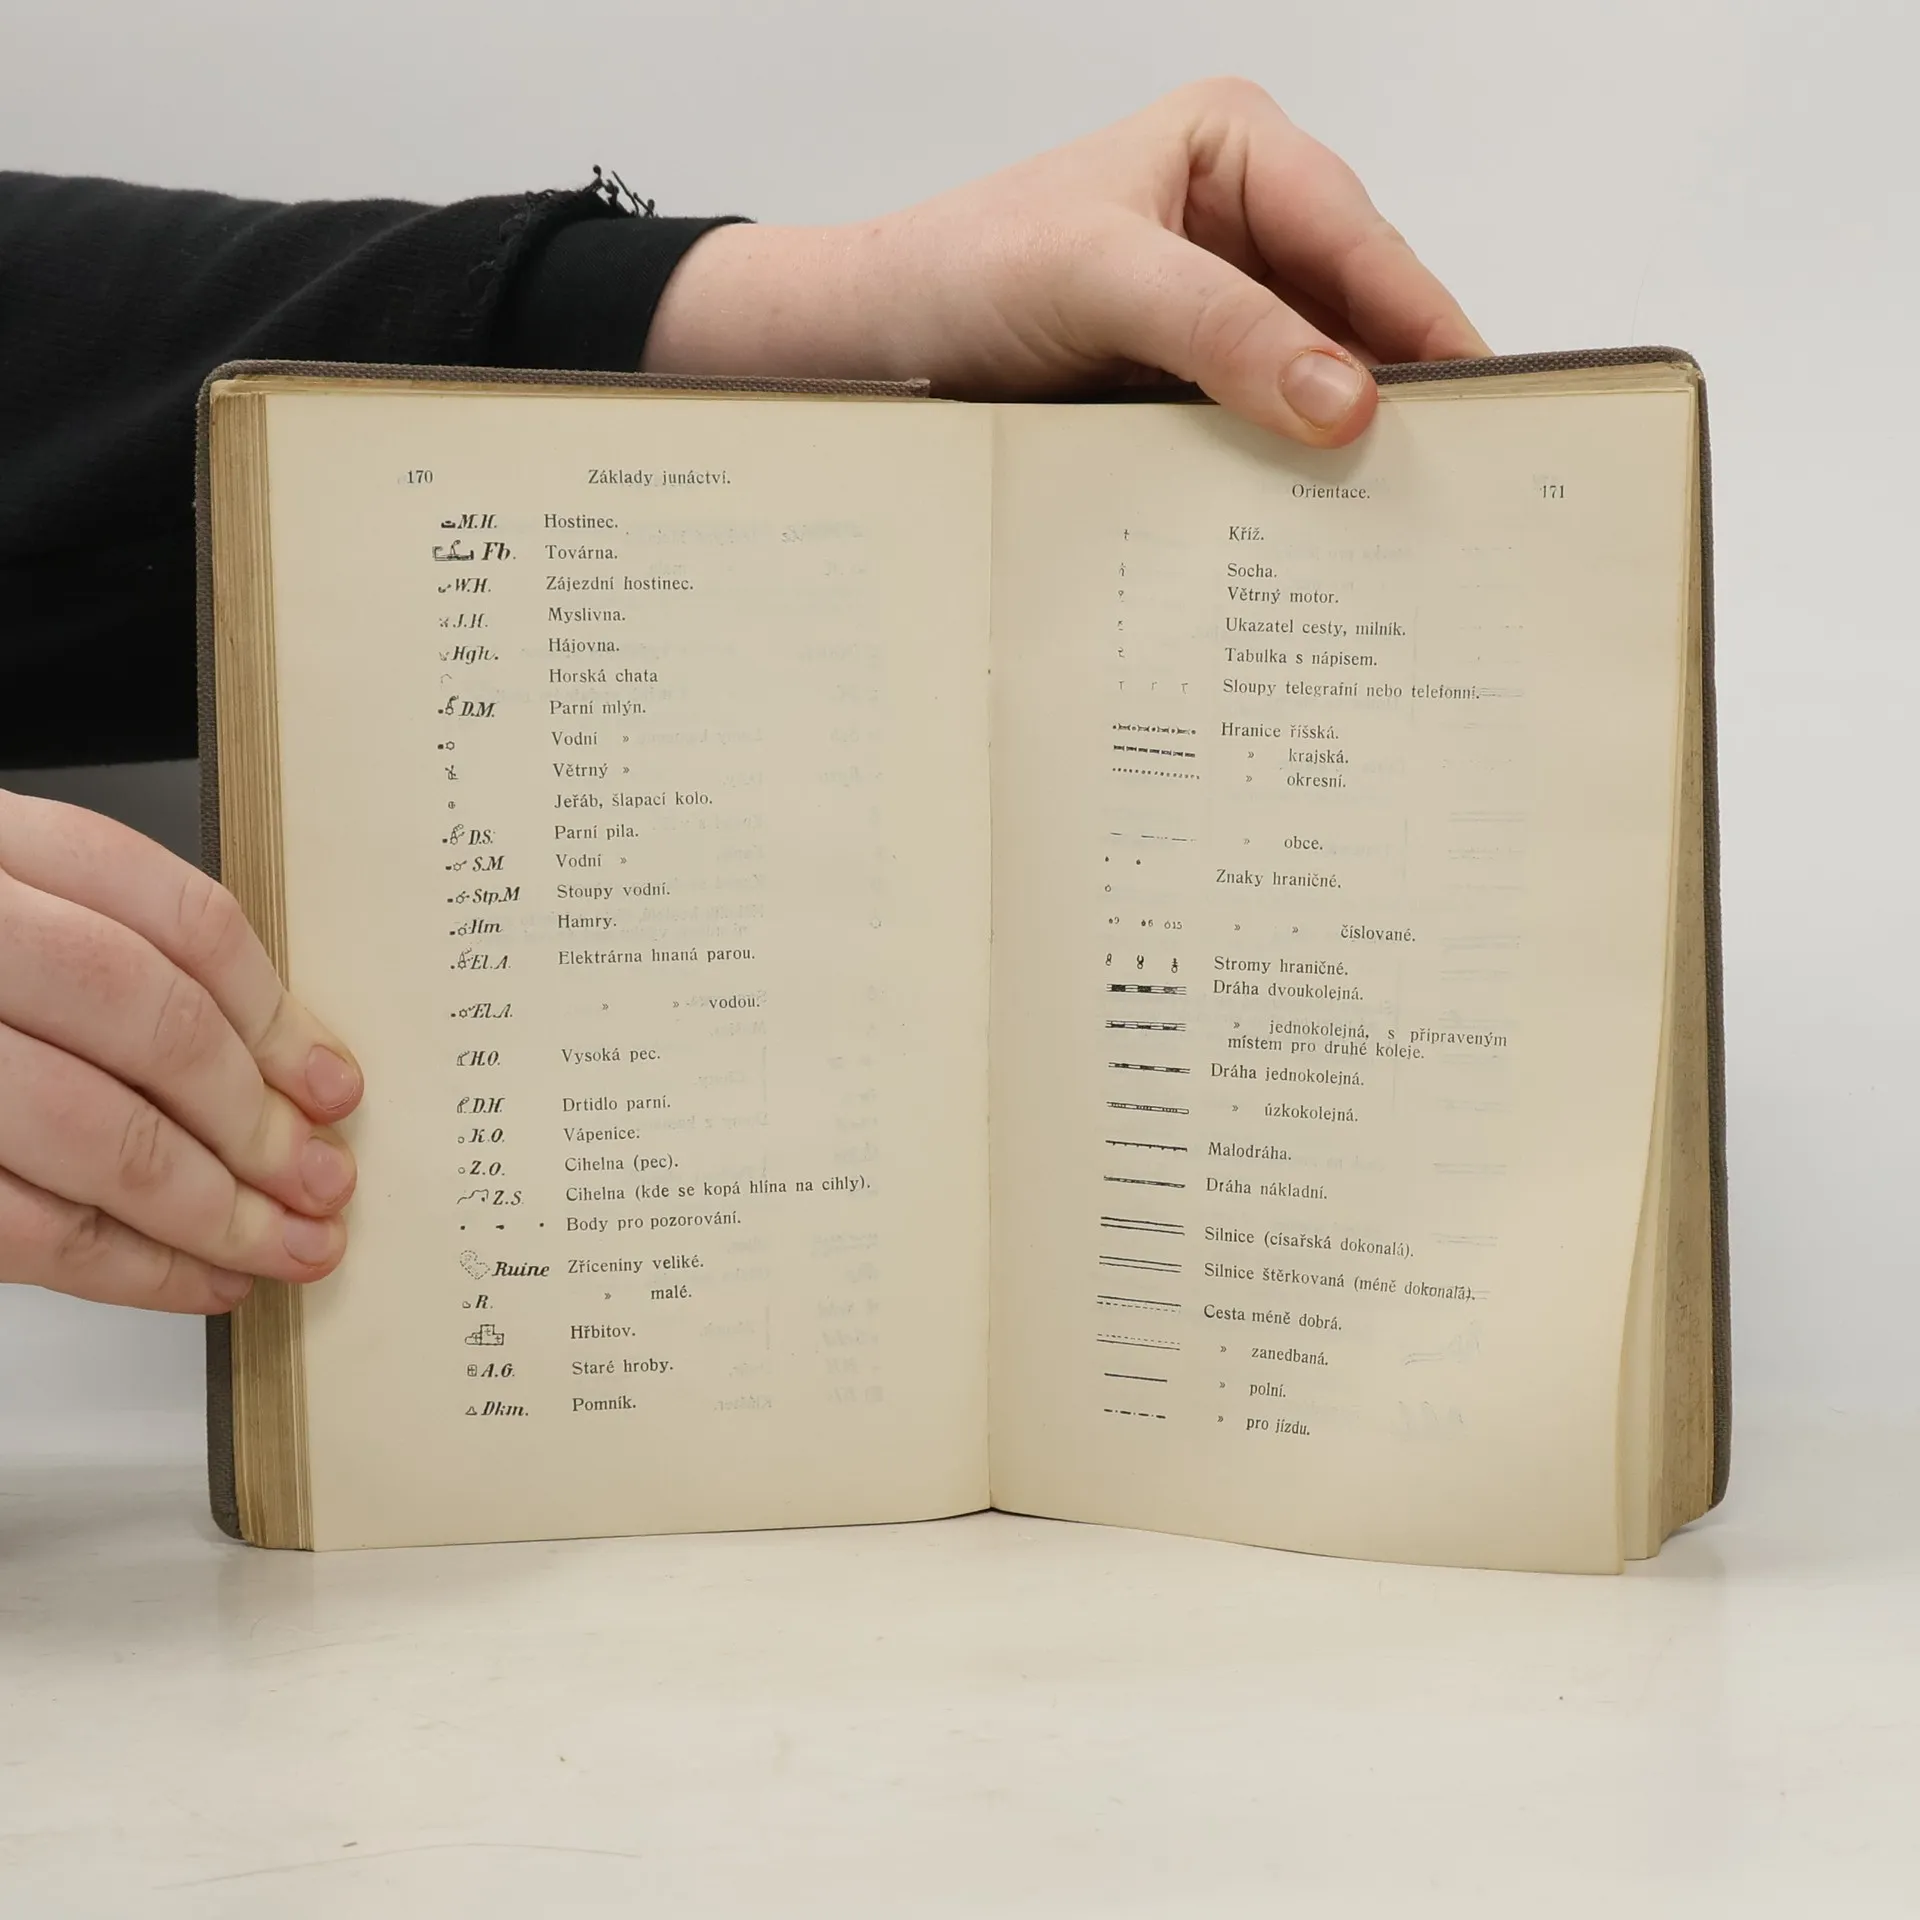 170 Základy junáctví.
M.H. Hostinec.
Fb. Továrna.
W.H. Zájezdní hostinec.
J.H. Myslivna.
Hgh. Hájovna.
Horská chata
D.M. Parní mlýn.
Vodní »
Větrný »
Jeřáb, šlapací kolo.
D.S. Parní pila.
S.M Vodní »
Stp.M Stoupy vodní.
Hm Hamry.
El.A. Elektrárna hnaná parou.
El.A. » » vodou.
H.O. Vysoká pec.
D.H. Drtidlo parní.
K.O. Vápenice.
Z.O. Cihelna (pec).
Z.S. Cihelna (kde se kopá hlína na cihly).
Body pro pozorování.
Ruine Zříceniny veliké.
R. » malé.
Hřbitov.
A.G. Staré hroby.
Dkm. Pomník.
Orientace. 171
Kříž.
Socha.
Větrný motor.
Ukazatel cesty, milník.
Tabulka s nápisem.
Sloupy telegrafní nebo telefonní.
Hranice říšská.
» krajská.
» okresní.
» obce.
Znaky hraničné.
9 6 15 » » číslované.
Stromy hraničné.
Dráha dvoukolejná.
» jednokolejná, s připraveným
místem pro druhé koleje.
Dráha jednokolejná.
» úzkokolejná.
Malodráha.
Dráha nákladní.
Silnice (císařská dokonalá).
Silnice štěrkovaná (méně dokonalá).
Cesta méně dobrá.
» zanedbaná.
» polní.
» pro jízdu.